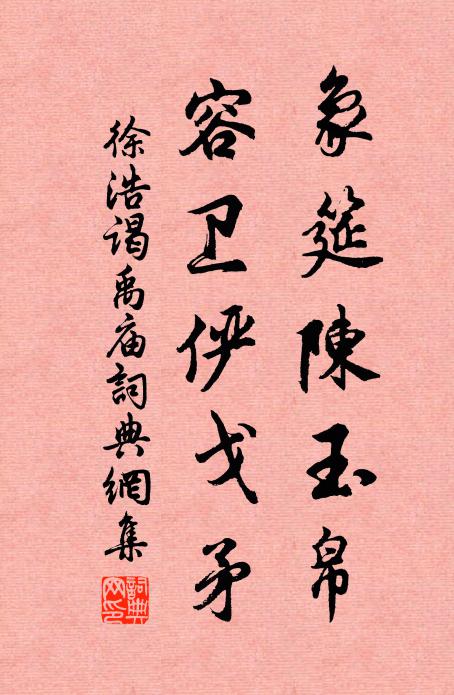 象筵陳玉帛
容卫俨戈矛
徐浩谒禹庙詞典網集
詞典网印